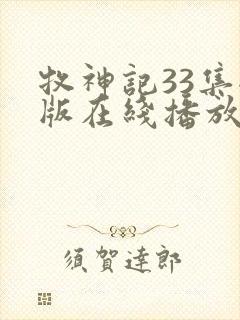 牧神記33集
版在綫播放
須賀達郎